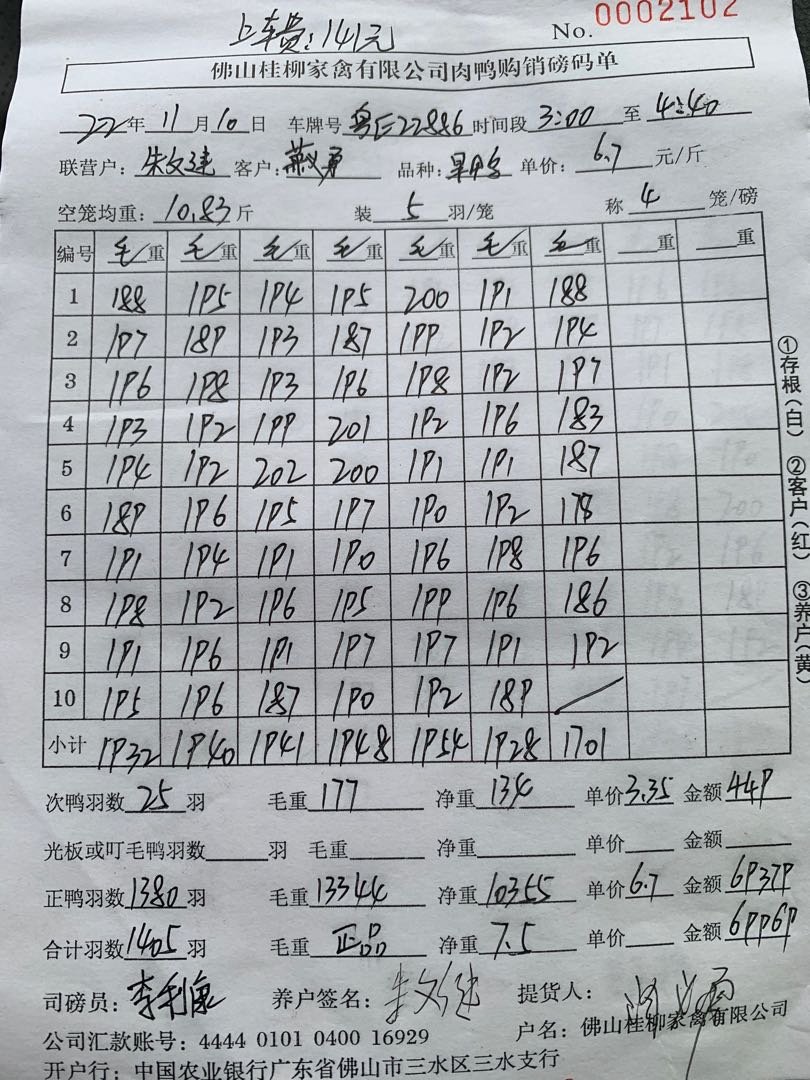 上车费:141元
No. 0002102
佛山桂柳家禽有限公司肉鸭购销磅码单
22年11月10日 车牌号粤E22886时间段3:00至4:40
联营户:朱文建 客户: 品种: 单价:6.7元/斤
空笼均重:10.83斤 装5羽/笼 称4笼/磅
编号 毛重 毛重 毛重 毛重 毛重 毛重 毛重 重 重
1 188 195 194 195 200 191 188
2 197 189 193 187 199 192 194
3 196 198 193 196 198 192 197
4 193 192 199 201 192 196 183
5 194 192 202 200 191 191 187
6 189 196 195 197 190 192 178
7 191 194 191 190 196 198 196
8 198 192 196 195 199 196 186
9 191 196 191 197 197 191 192
10 195 196 187 190 192 189 /
小计 1932 1940 1941 1948 1954 1928 1701
次鸭羽数25羽 毛重177 净重134 单价3.35 金额449
光板或叮毛鸭羽数 羽 毛重 净重 单价 金额
正鸭羽数1380羽 毛重13344 净重10355 单价6.7 金额69379
合计羽数1405羽 毛重正品 净重7.5 单价 金额69969
司磅员:李利康 养户签名:朱文建 提货人:
公司汇款账号:4444 0101 0400 16929 户名:佛山桂柳家禽有限公司
开户行:中国农业银行广东省佛山市三水区三水支行
①存根(白) ②客户(红) ③养户(黄)